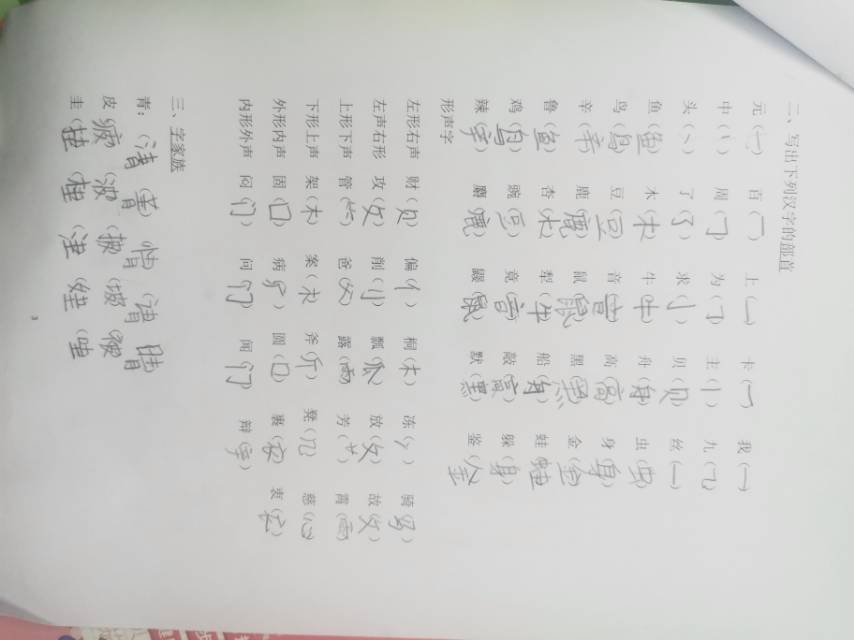 二、写出下列汉字的部首
元(一) 百(一) 上(一) 卡(一) 我(一)
中(丨) 周(冂) 为( ) 主( ) 九( )
头(丶) 了(了) 求(小) 贝(贝) 丝(一)
鱼(鱼) 木(木) 牛(牛) 舟(舟) 虫(虫)
鸟(鸟) 豆(豆) 音(音) 高(高) 身(身)
辛(辛) 鹿(鹿) 鼠(鼠) 黑(黑) 金(金)
鲁(鱼) 杏(木) 犁(牛) 船(舟) 蛙(虫)
鸡(鸟) 豌(豆) 竟(音) 敲(高) 躲(身)
辣(辛) 麝(鹿) 鼹(鼠) 默(黑) 鉴(金)
形声字
左形右声 财(贝) 偏(亻) 桐(木) 冻(冫) 骑(马)
左声右形 攻(攵) 削(刂) 瓢(瓜) 放(攵) 故(攵)
上形下声 管(竹) 爸(父) 露(雨) 芳(艹) 霄(雨)
下形上声 架(木) 案(木) 斧(斤) 凳(几) 慈(心)
外形内声 固(囗) 病(疒) 圆(囗) 裹(衣) 衷(衣)
内形外声 闷(门) 问(门) 闻(门) 辩(辛)
三、字家族
青：(清 菁 情 请 睛
皮 疲 (波 (披 (坡 (被
圭 (桂 洼 (娃 (哇
3